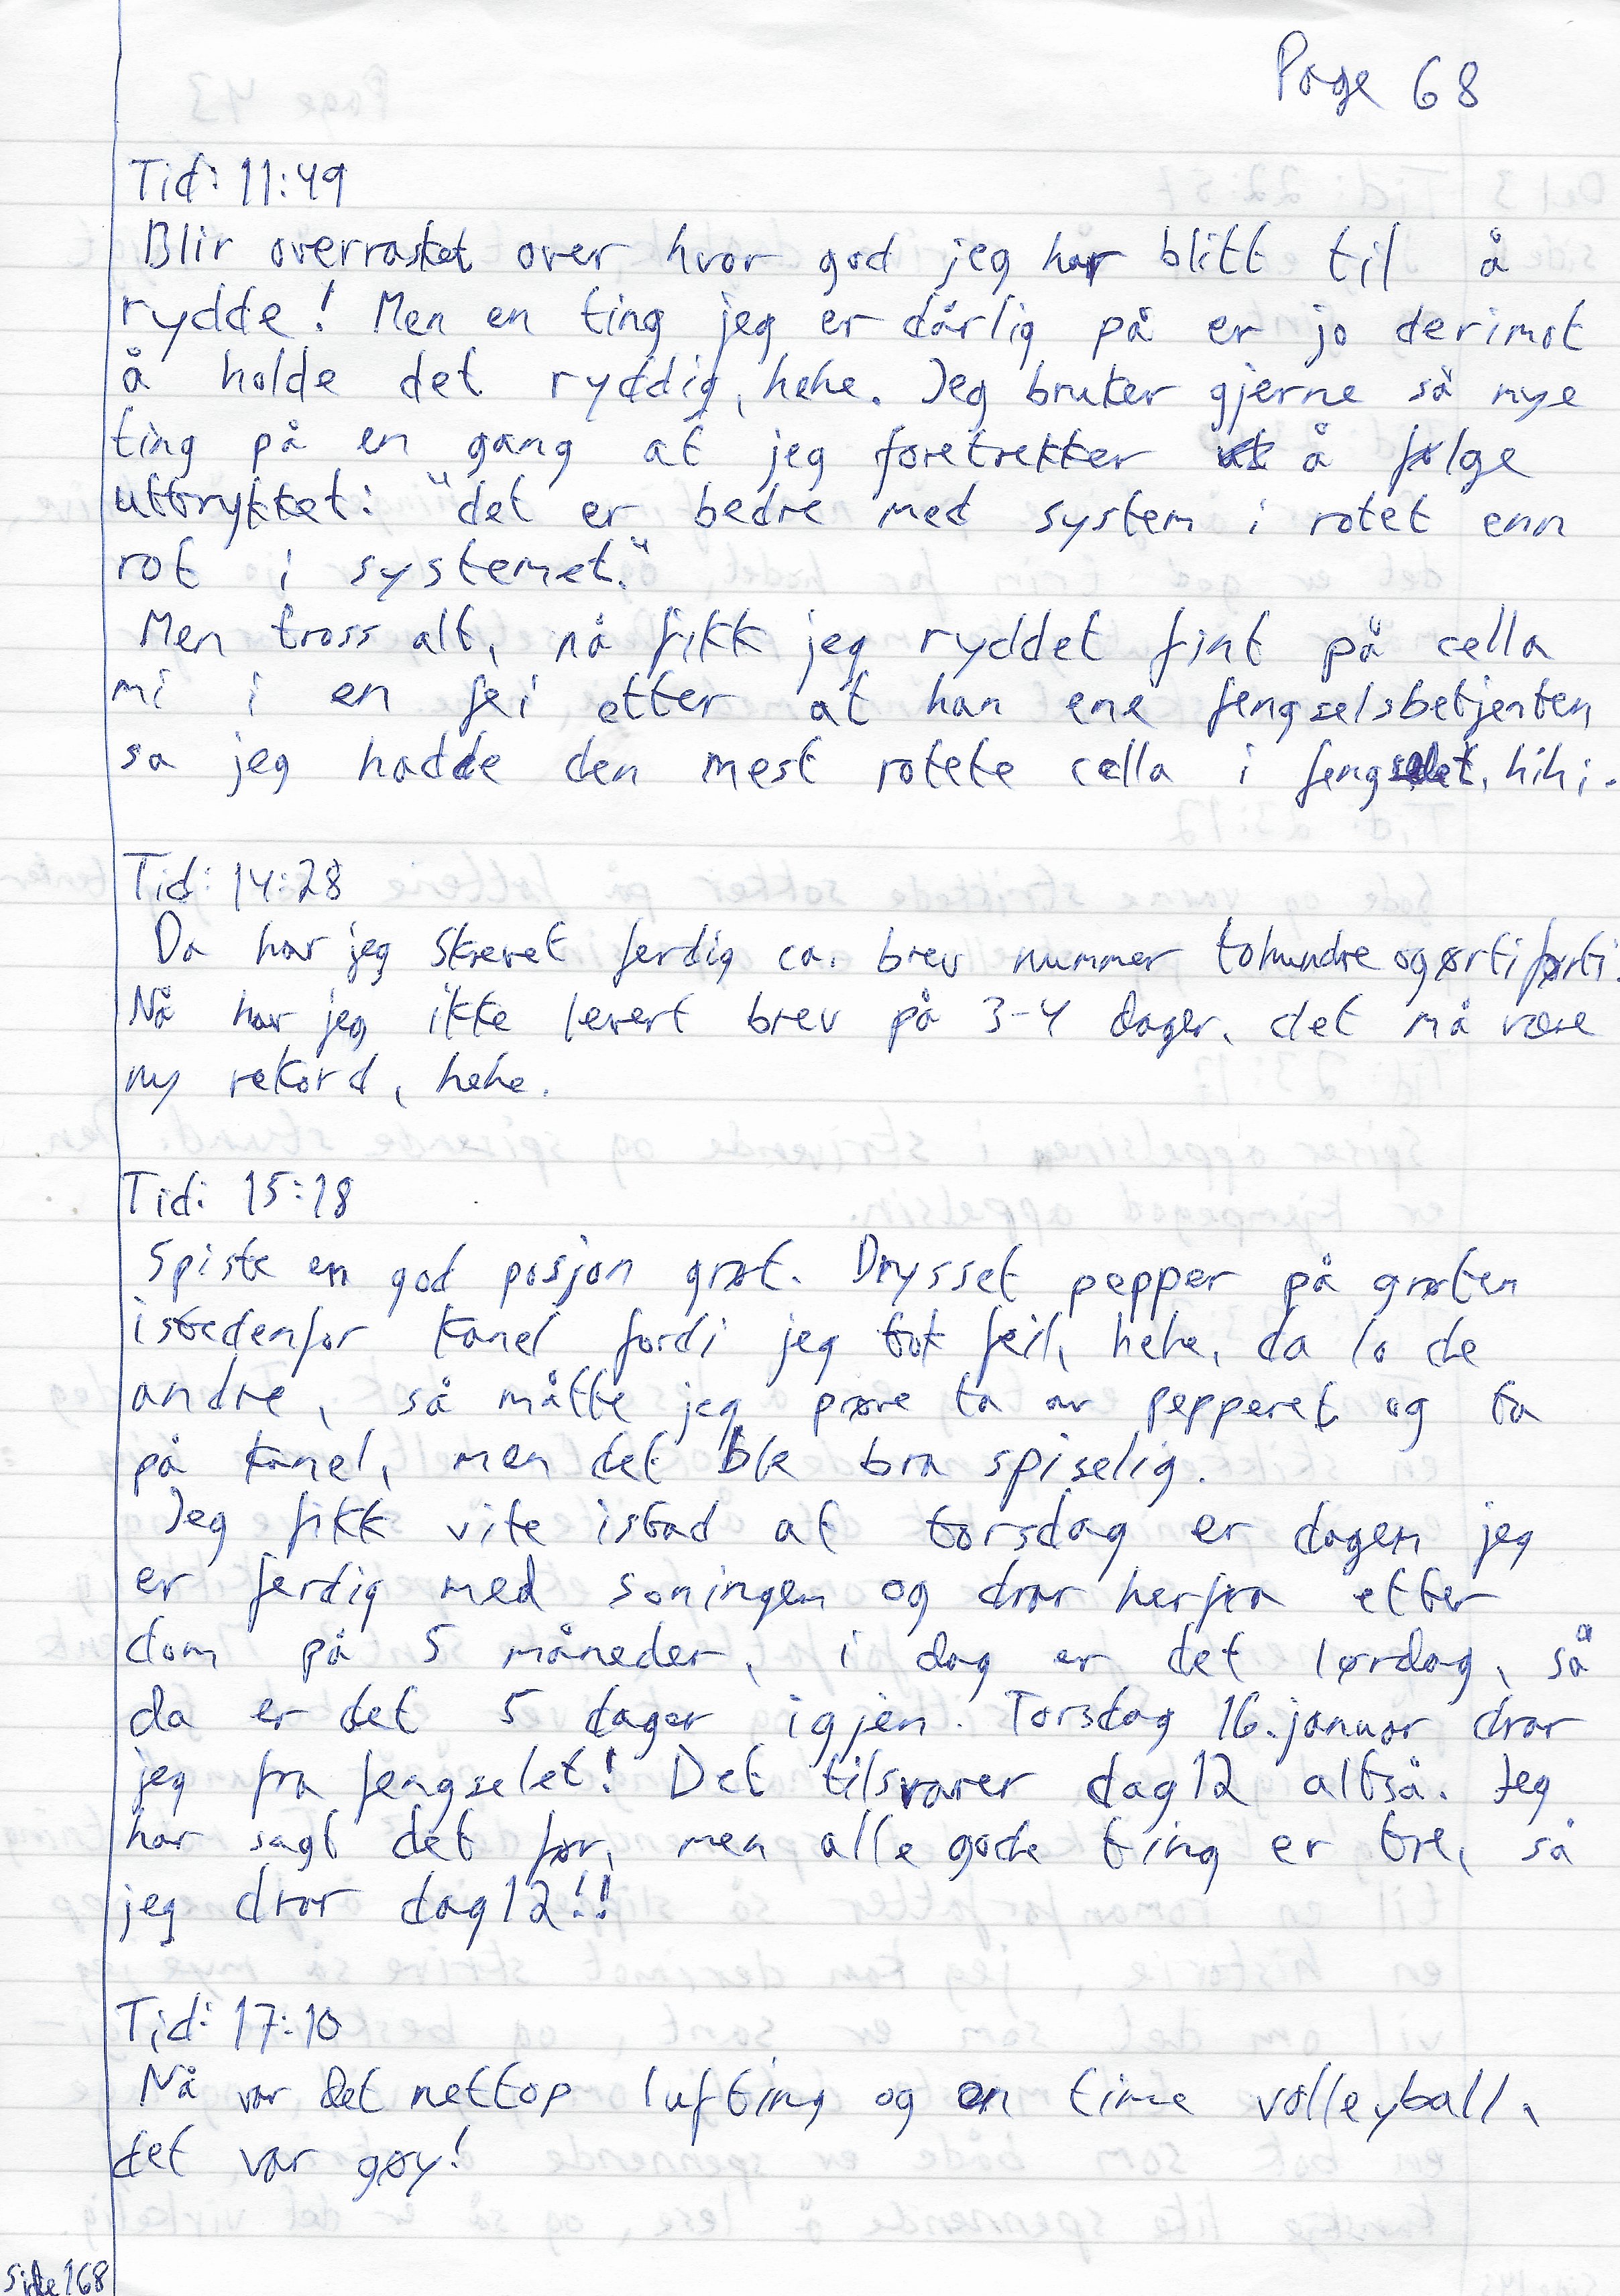 Page 68
Tid: 11:49
Blir overrasket over hvor god jeg har blitt til å
rydde! Men en ting jeg er dårlig på er jo derimot
å holde det ryddig, hehe. Jeg bruker gjerne så mye
ting på en gang at jeg foretrekker å følge
uttrykket: "det er bedre med system i rotet enn
rot i systemet."
Men tross alt, nå fikk jeg ryddet fint på cella
mi i en fei etter at han ene fengselsbetjenten
sa jeg hadde den mest rotete cella i fengselet, hihi.
Tid: 14:28
Da har jeg skrevet ferdig ca. brev nummer tohundre og ørtiførti.
Nå har jeg ikke levert brev på 3-4 dager, det må være
ny rekord, hehe.
Tid: 15:18
Spiste en god posjon grøt. Drysset pepper på grøten
istedenfor kanel fordi jeg tok feil, hehe, da lo de
andre, så måtte jeg prøve ta av pepperet og ta
på kanel, men det ble bra spiselig.
Jeg fikk vite istad at torsdag er dagen jeg
er ferdig med soningen og drar herfra etter
dom på 5 måneder, i dag er det lørdag, så
da er det 5 dager igjen. Torsdag 16. januar drar
jeg fra fengselet! Det tilsvarer dag 12 altså. Jeg
har sagt det før, men alle gode ting er tre, så
jeg drar dag 12!!
Tid: 17:10
Nå var det nettop lufting og en time volleyball,
det var gøy!
Side 168